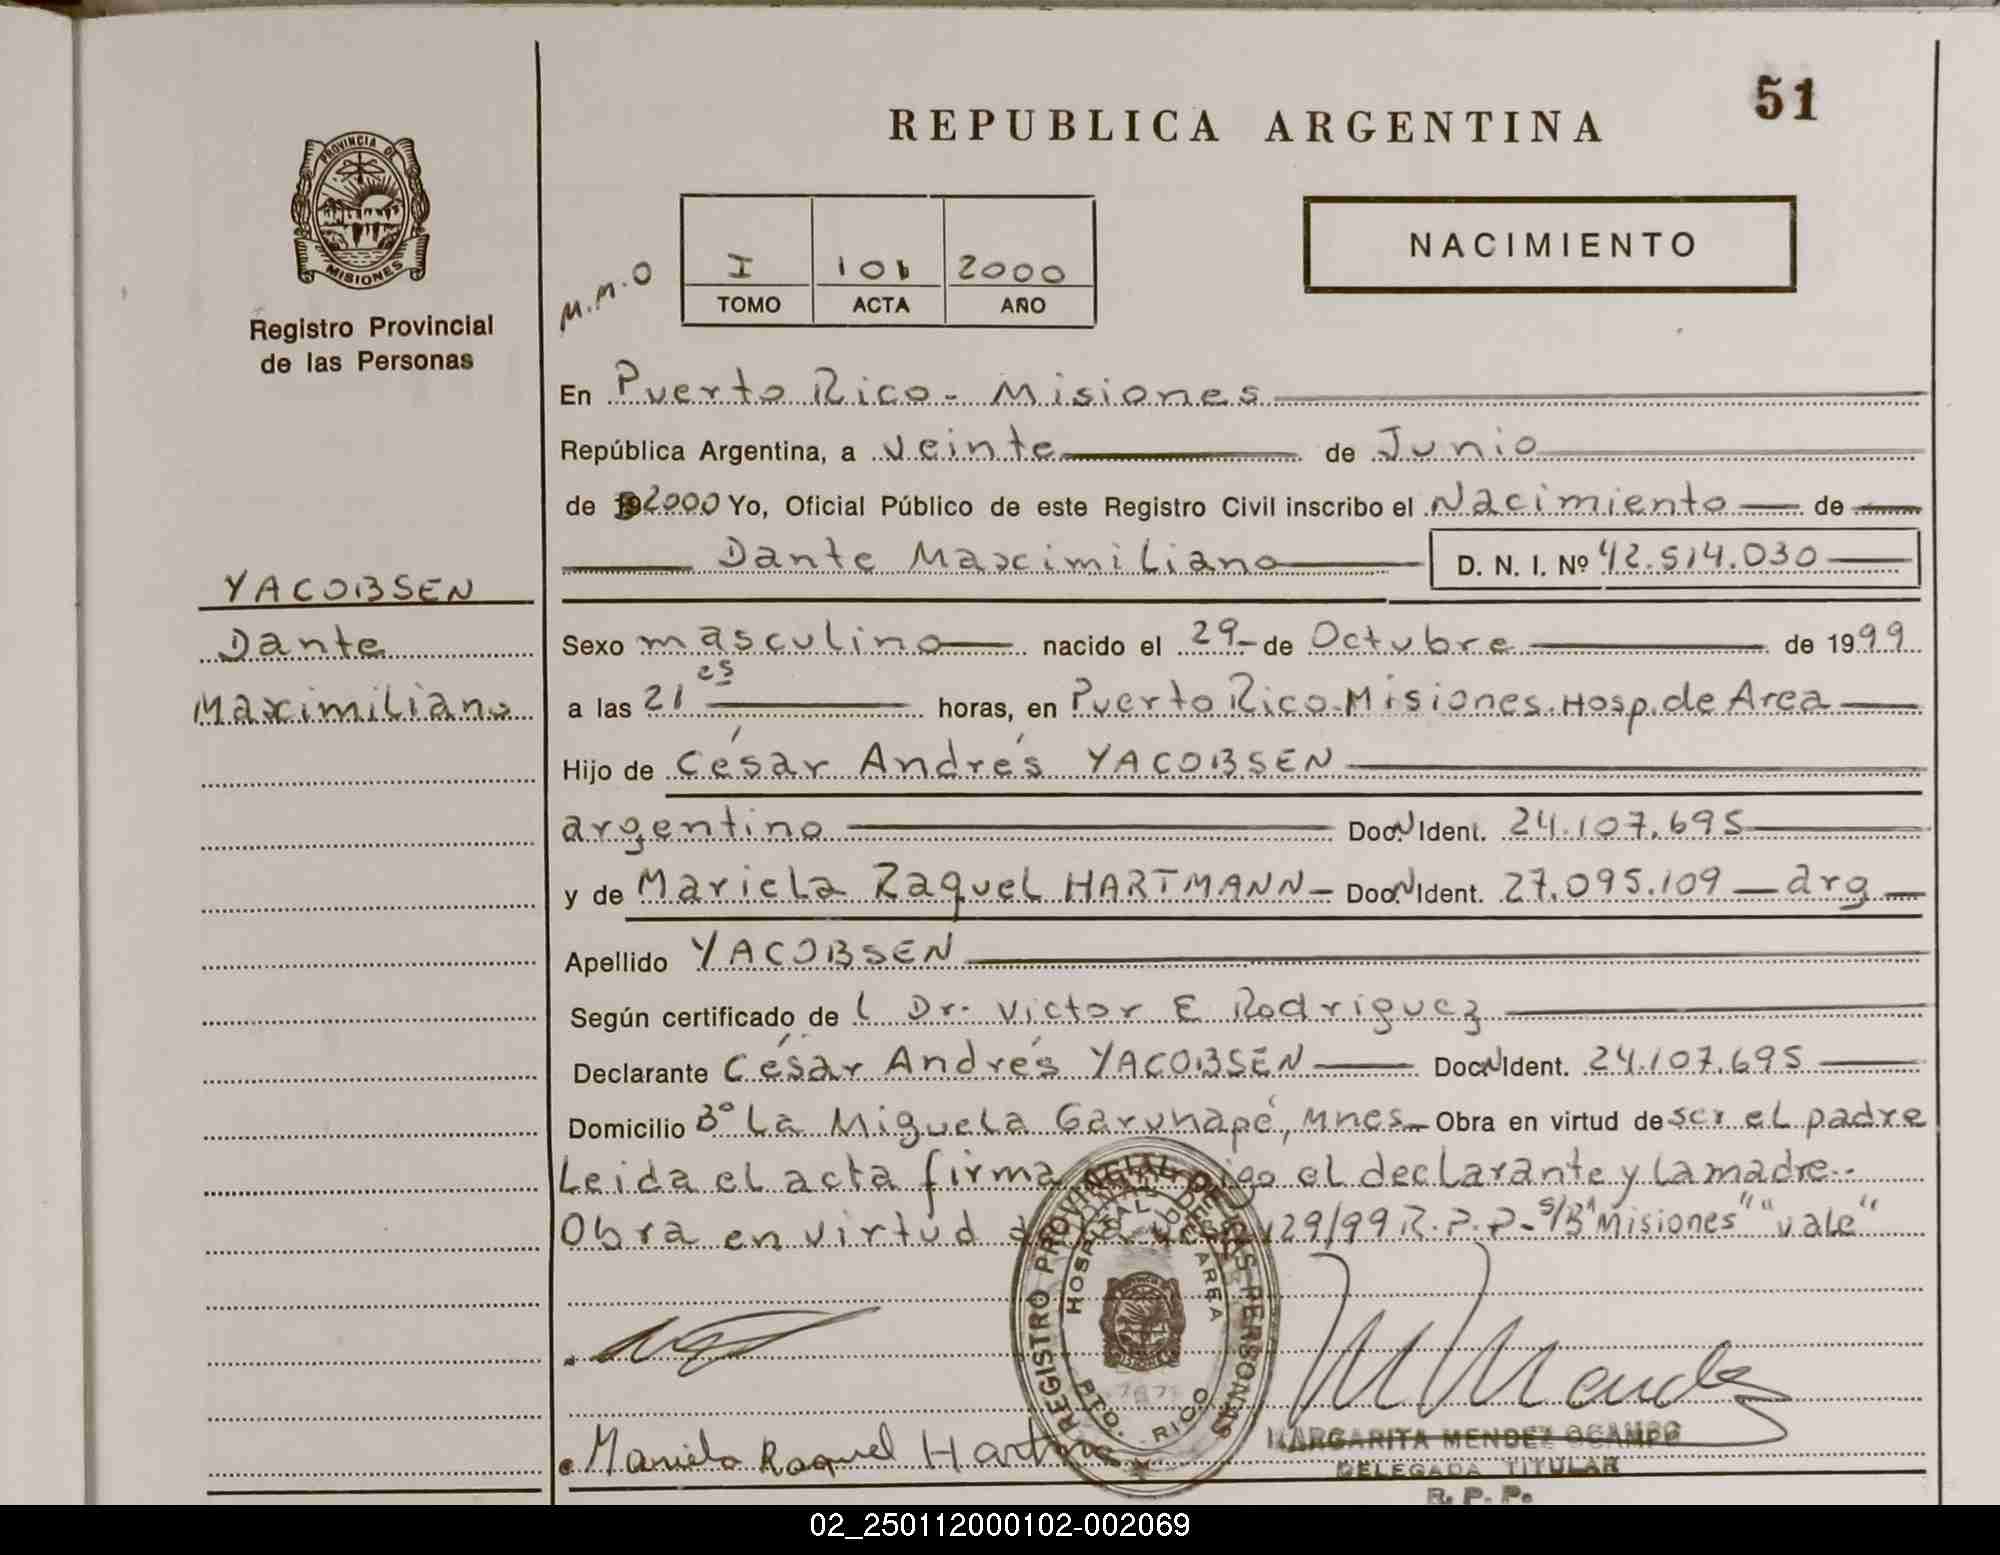 51
REPUBLICA ARGENTINA
PROVINCIA DE
MISIONES
Registro Provincial
de las Personas
M.M.O
I 101 2000
TOMO ACTA AÑO
NACIMIENTO
En Puerto Rico - Misiones
República Argentina, a veinte de Junio
de 2000 Yo, Oficial Público de este Registro Civil inscribo el Nacimiento de
Dante Maximiliano D. N. I. Nº 42.514.030
YACOBSEN
Dante
Maximiliano
Sexo masculino nacido el 29- de Octubre de 1999
a las 21 es horas, en Puerto Rico-Misiones. Hosp. de Area
Hijo de César Andrés YACOBSEN
argentino Doc. N Ident. 24.107.695
y de Mariela Raquel HARTMANN - Doc. N Ident. 27.095.109 - arg
Apellido YACOBSEN
Según certificado de l Dr. Victor E Rodriguez
Declarante César Andrés YACOBSEN Doc. N Ident. 24.107.695
Domicilio Bº La Miguela Garuhapé, Mnes Obra en virtud de ser el padre
Leida el acta firma el declarante y la madre.-
Obra en virtud 29/99 R.P.P- s/B "Misiones" "vale"
REGISTRO PROVINCIAL DE LAS PERSONAS
HOSPITAL DE AREA
PTO. RICO
Mariela Raquel Hartma
M Mendez
MARGARITA MENDEZ OCAMPO
DELEGADA TITULAR
R. P. P.
02_250112000102-002069